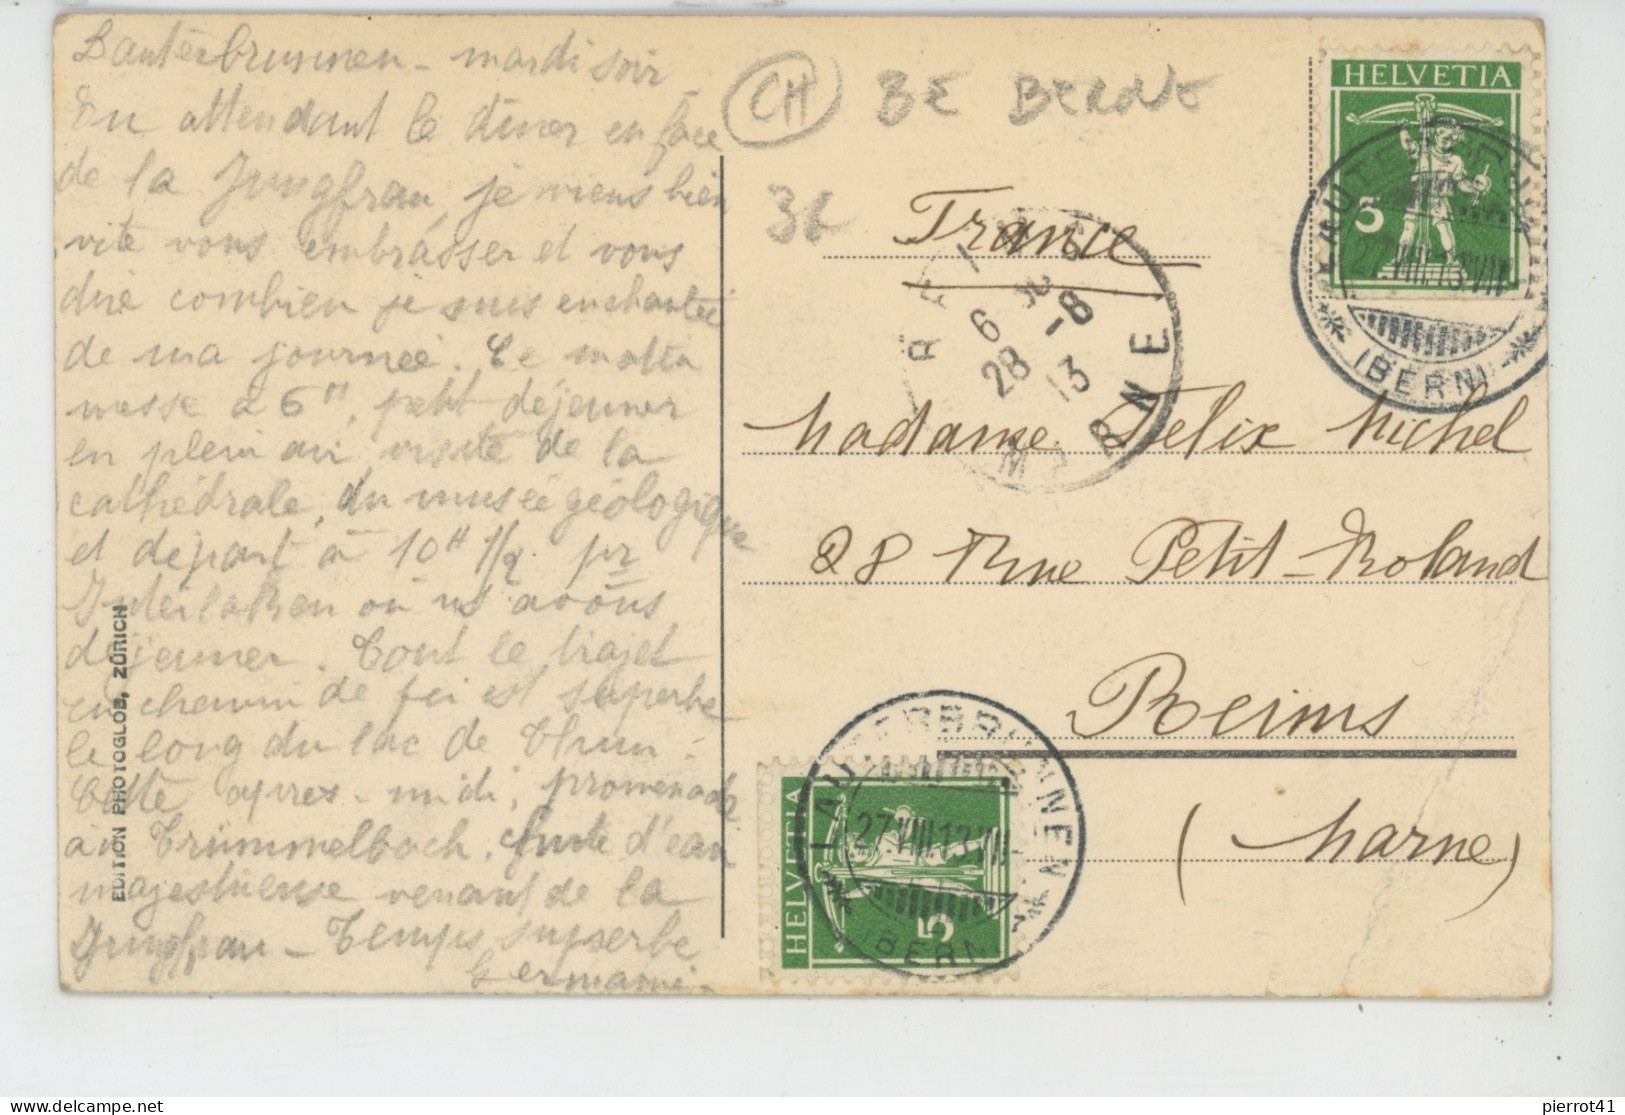 Lauterbrunnen - mardi soir
En attendant le dîner en face
de la Jungfrau, je viens bien
vite vous embrasser et vous
dire combien je suis enchantée
de ma journée. Ce matin
messe à 6H, petit déjeuner
en plein air, visite de la
cathédrale, du musée géologique
et départ à 10H 1/2 pr
Interlaken où ns avons
déjeuner. Tout le trajet
en chemin de fer est superbe
le long du lac de Thun.
Cette après-midi, promenade
au Trümmelbach, chute d'eau
majestueuse venant de la
Jungfrau - Temps superbe
Germaine.
EDITION PHOTOGLOB, ZÜRICH
CH BE BERNE
36
HELVETIA
5
LAUTERBRUNNEN
27.VIII.13.VII
(BERN)
France
REIMS
6 30
28 -8
13
MARNE
Madame Félix Michel
28 Rue Petit-Roland
Reims
(Marne)
HELVETIA
5
LAUTERBRUNNEN
27.VIII.13.VII
(BERN)
pierrot41